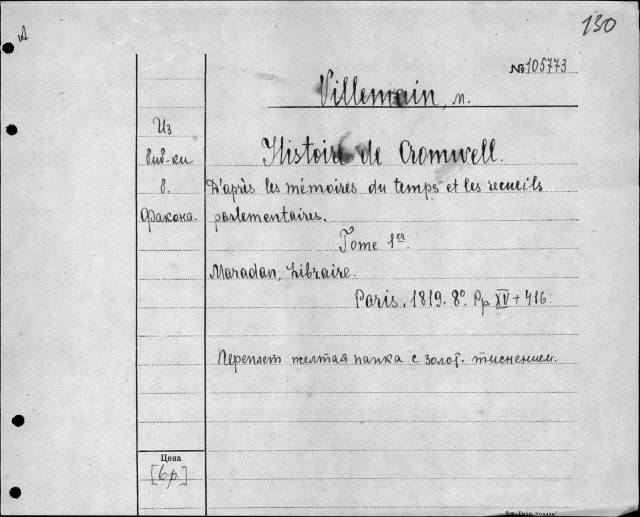 130
№ 105773
Villemain, м.
Из
биб-ки
в.
Факона.
Histoire de Cromwell.
D'après les mémoires du temps et les recueils
parlementaires.
Tome 1er.
Maradan, Libraire.
Paris, 1819. 8°. Pp XV + 416.
Переплет желтая папка с золот. тиснением.
Цена
[6р.]